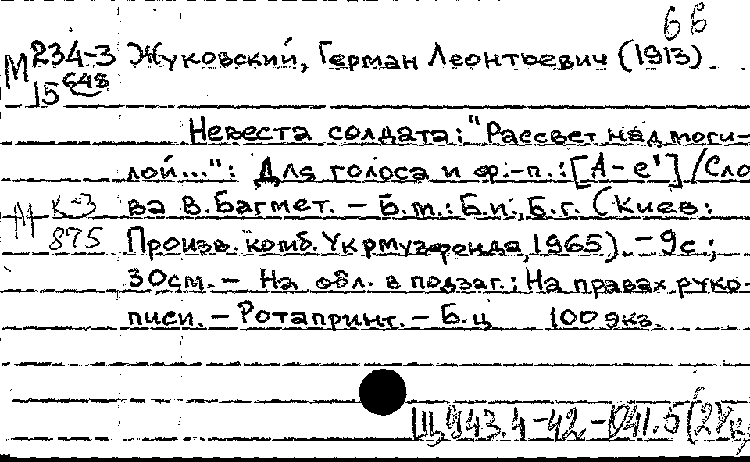 6 Б
М 234-3 Жуковский, Герман Леонтьевич (1913).
15 648
Невеста солдата: "Рассвет над моги-
лой...": Для голоса и ф.-п.: [A-e¹] / Сло
М К-3 ва В. Багмет. - Б.м.: Б.и., Б.г. (Киев:
875 Произв. комб. Укрмузфонда, 1965). - 9с.;
30см. - На обл. в подзаг.: На правах руко-
писи. - Ротапринт. - Б.ц 100 экз.
Щ943.4-42-041.5(2Ук)